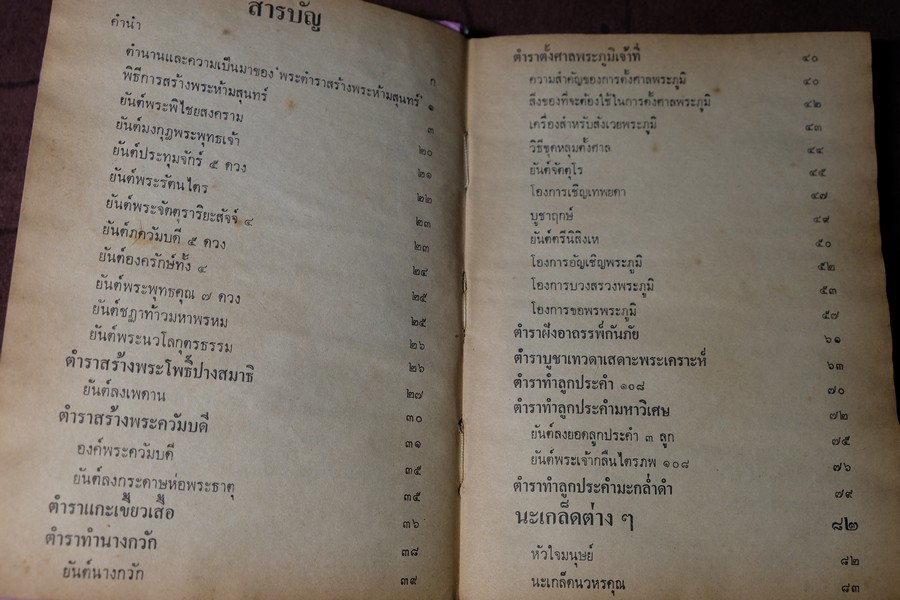 สารบัญ
คำนำ ก
ตำนานและความเป็นมาของ "พระตำราสร้างพระห้ามสุนทร์" ๑
พิธีการสร้างพระห้ามสุนทร์ ๓
ยันต์พระพิไชยสงคราม ๒๐
ยันต์มงกุฎพระพุทธเจ้า ๒๑
ยันต์ประทุมจักร์ ๕ ดวง ๒๒
ยันต์พระรัตนไตร ๒๓
ยันต์พระจัตตุราริยะสัจจ์ ๔ ๒๓
ยันต์ภควัมบดี ๕ ดวง ๒๔
ยันต์องครักษ์ทั้ง ๔ ๒๕
ยันต์พระพุทธคุณ ๗ ดวง ๒๕
ยันต์ชฎาท้าวมหาพรหม ๒๖
ยันต์พระนวโลกุตรธรรม ๒๖
ตำราสร้างพระโพธิ์ปางสมาธิ ๒๗
ยันต์ลงเพดาน ๓๐
ตำราสร้างพระควัมบดี ๓๑
องค์พระควัมบดี ๓๕
ยันต์ลงกระดาษห่อพระธาตุ ๓๕
ตำราแกะเขี้ยวเสือ ๓๖
ตำราทำนางกวัก ๓๘
ยันต์นางกวัก ๓๙
ตำราตั้งศาลพระภูมิเจ้าที่ ๔๐
ความสำคัญของการตั้งศาลพระภูมิ ๔๐
สิ่งของที่จะต้องใช้ในการตั้งศาลพระภูมิ ๔๒
เครื่องสำหรับสังเวยพระภูมิ ๔๓
วิธีขุดหลุมตั้งศาล ๔๔
ยันต์จัตตุโร ๔๕
โองการเชิญเทพยดา ๔๗
บูชาฤกษ์ ๔๙
ยันต์ตรีนิสิงเห ๕๐
โองการอัญเชิญพระภูมิ ๕๒
โองการบวงสรวงพระภูมิ ๕๓
โองการขอพรพระภูมิ ๕๗
ตำราฝังอาถรรพ์กันภัย ๖๑
ตำราบูชาเทวดาเสดาะพระเคราะห์ ๖๓
ตำราทำลูกประคำ ๑๐๘ ๗๐
ตำราทำลูกประคำมหาวิเศษ ๗๒
ยันต์ลงยอดลูกประคำ ๓ ลูก ๗๕
ยันต์พระเจ้ากลืนไตรภพ ๑๐๘ ๗๖
ตำราทำลูกประคำมะกล่ำดำ ๗๙
นะเกล็ดต่าง ๆ ๘๒
หัวใจมนุษย์ ๘๒
นะเกล็ดนวหรคุณ ๘๓